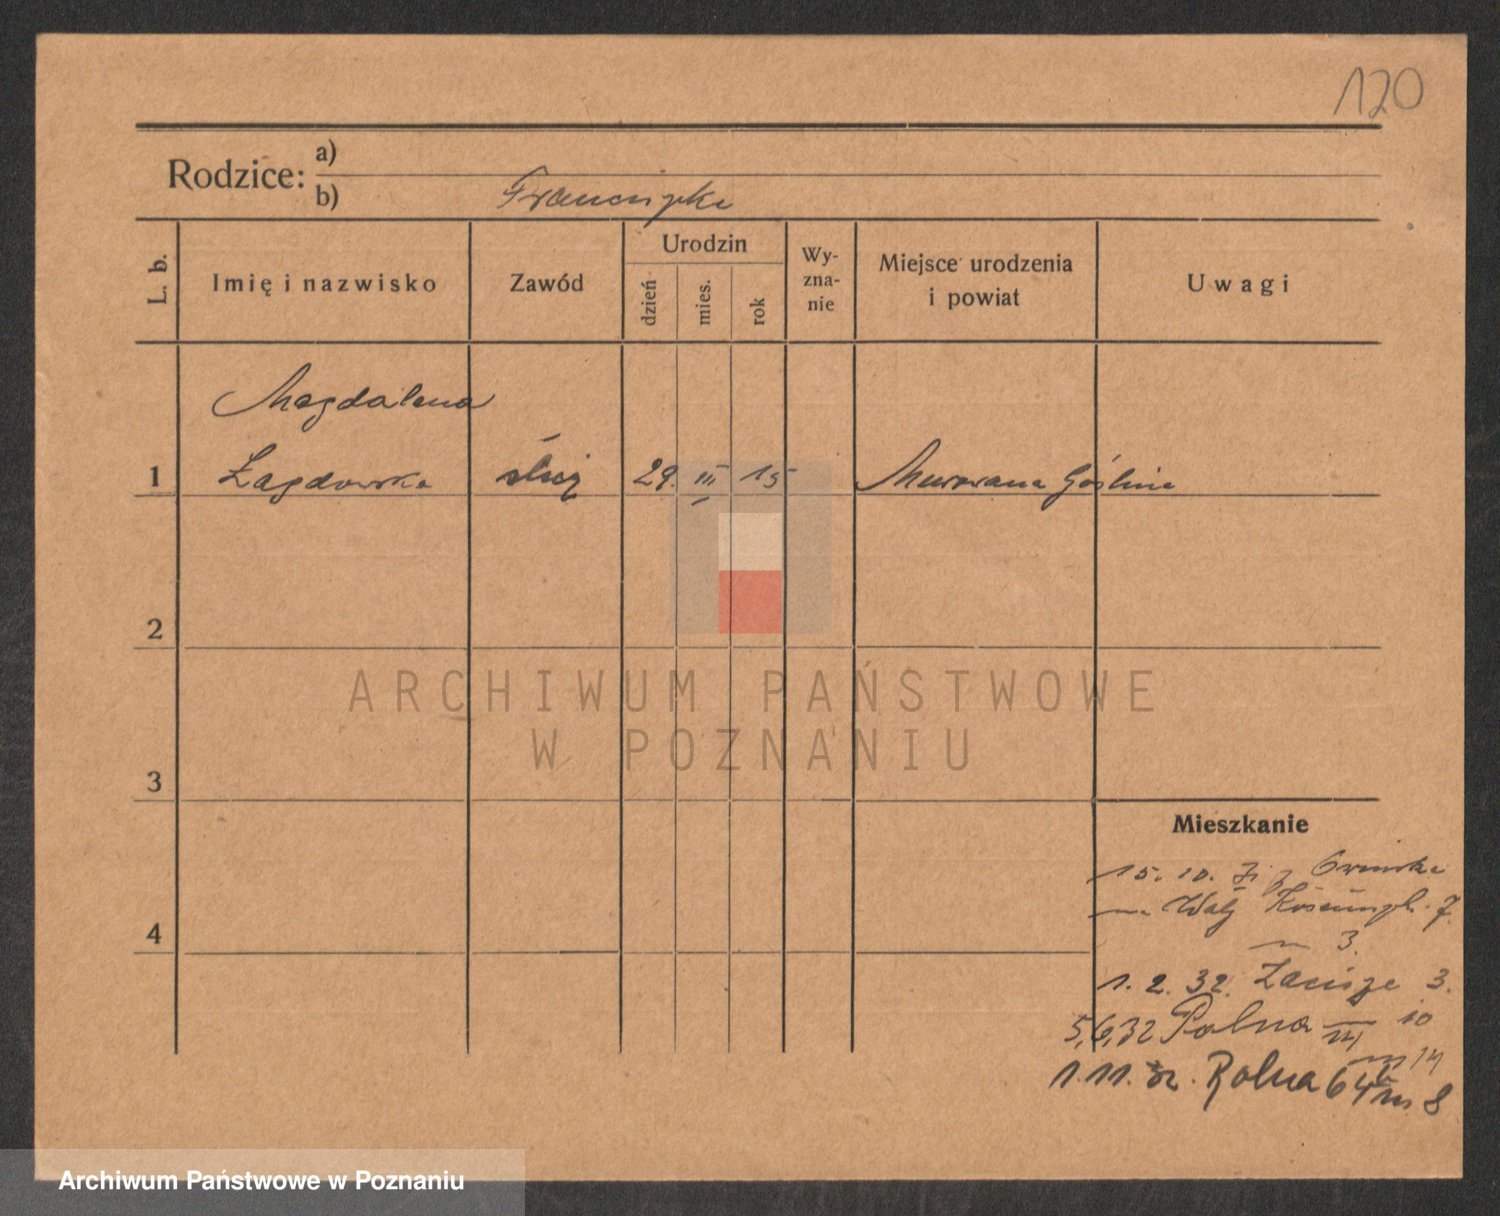 120
Rodzice: a)
b) Franciszka
L. b.
Imię i nazwisko
Zawód
Urodzin
dzień
mies.
rok
Wy-
zna-
nie
Miejsce urodzenia
i powiat
Uwagi
Magdalena
1 Łagdowska służ 29. III 15 Murowana Goślina
2
ARCHIWUM PAŃSTWOWE
W POZNANIU
3
Mieszkanie
15. 10. 31 z Owińska
na Wały 7
m 3.
4
1. 2. 32. Zacisze 3.
5,6,32 Polna 10
m 14
1. 11. 32. Rolna 64 m 8
Archiwum Państwowe w Poznaniu